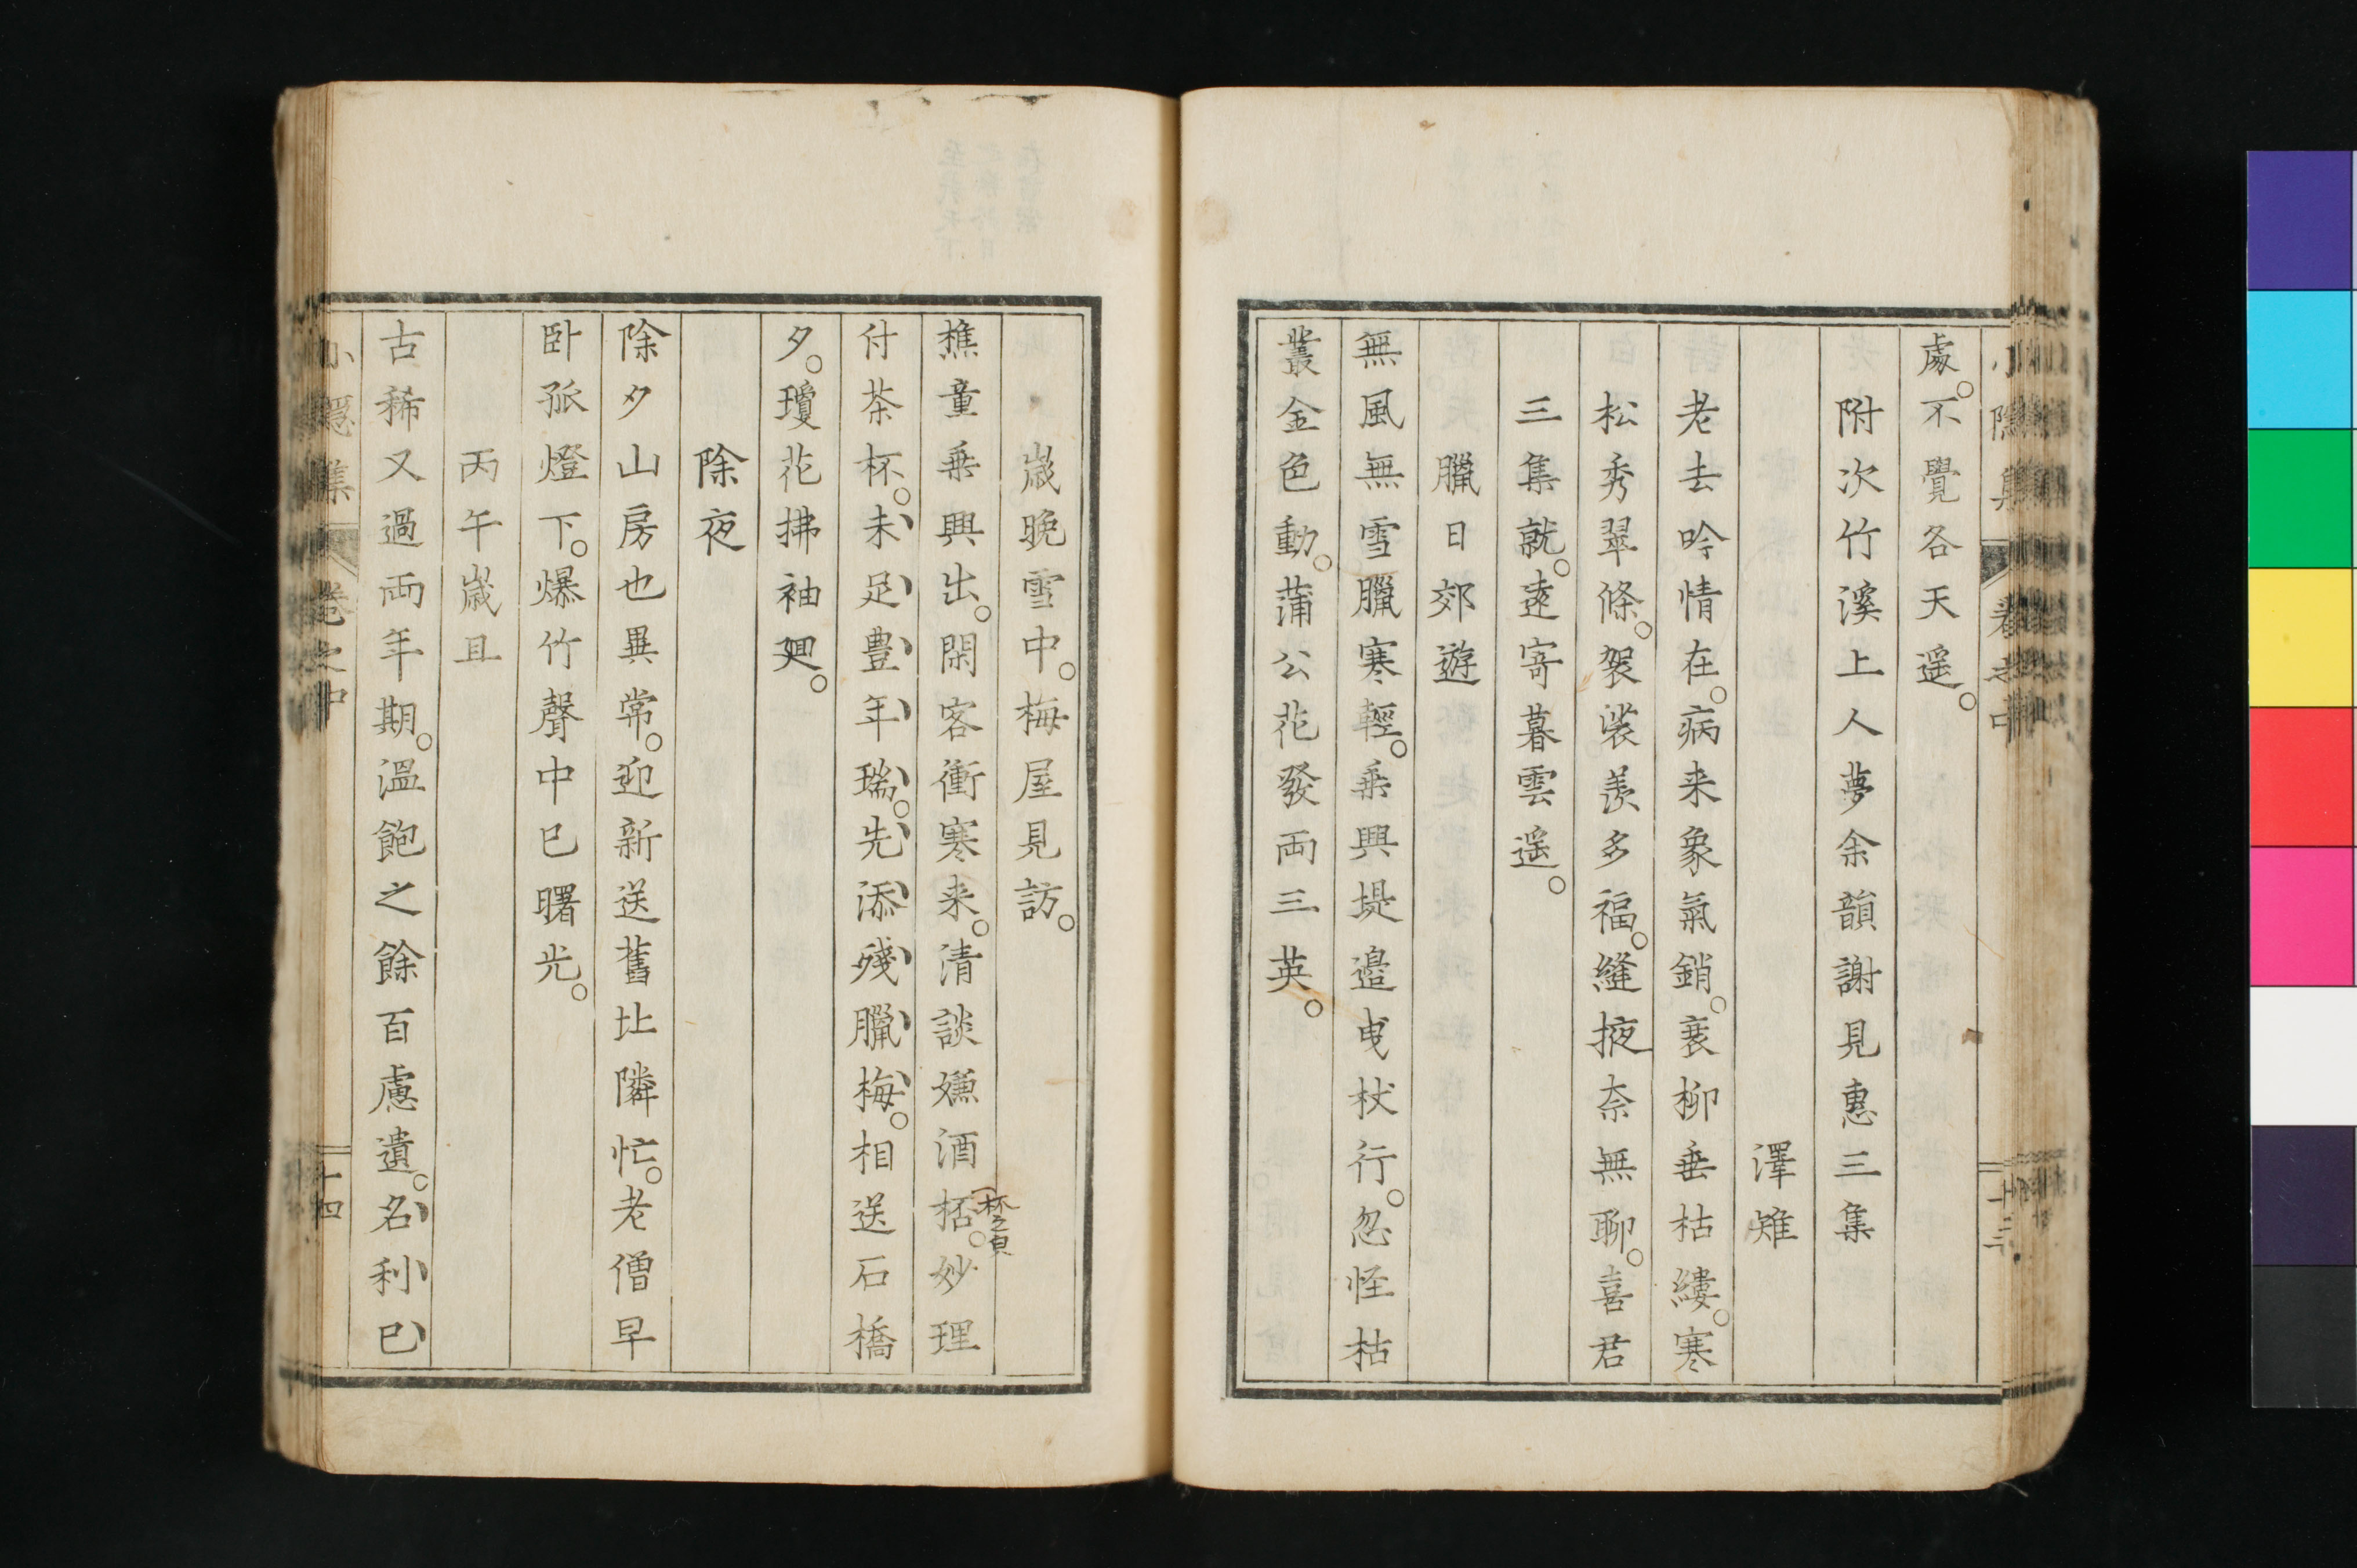 處。不覺各天遥。
附次竹溪上人夢余韻謝見惠三集
澤雉
老去吟情在。病来象氣銷。衰柳垂枯縷。寒
松秀翠條。袈裟羨多福。縫掖奈無聊。喜君
三集就。遠寄暮雲遥。
臘日郊遊
無風無雪臘寒輕。乗興堤邉曳杖行。忽怪枯
叢金色動。蒲公花發両三英。
小隠集 卷之中 十三
歳晩雪中。梅屋見訪。
樵童乗興出。閑客衝寒来。清談嫌酒栝。妙理
杯之貟
付茶杯。未足豊年瑞。先添殘臘梅。相送石橋
夕。瓊花拂袖廻。
除夜
除夕山房也異常。迎新送舊比隣忙。老僧早
卧孤燈下。爆竹聲中已曙光。
丙午歳旦
古稀又過両年期。溫飽之餘百慮遺。名利已
小隱集 卷之中 十四